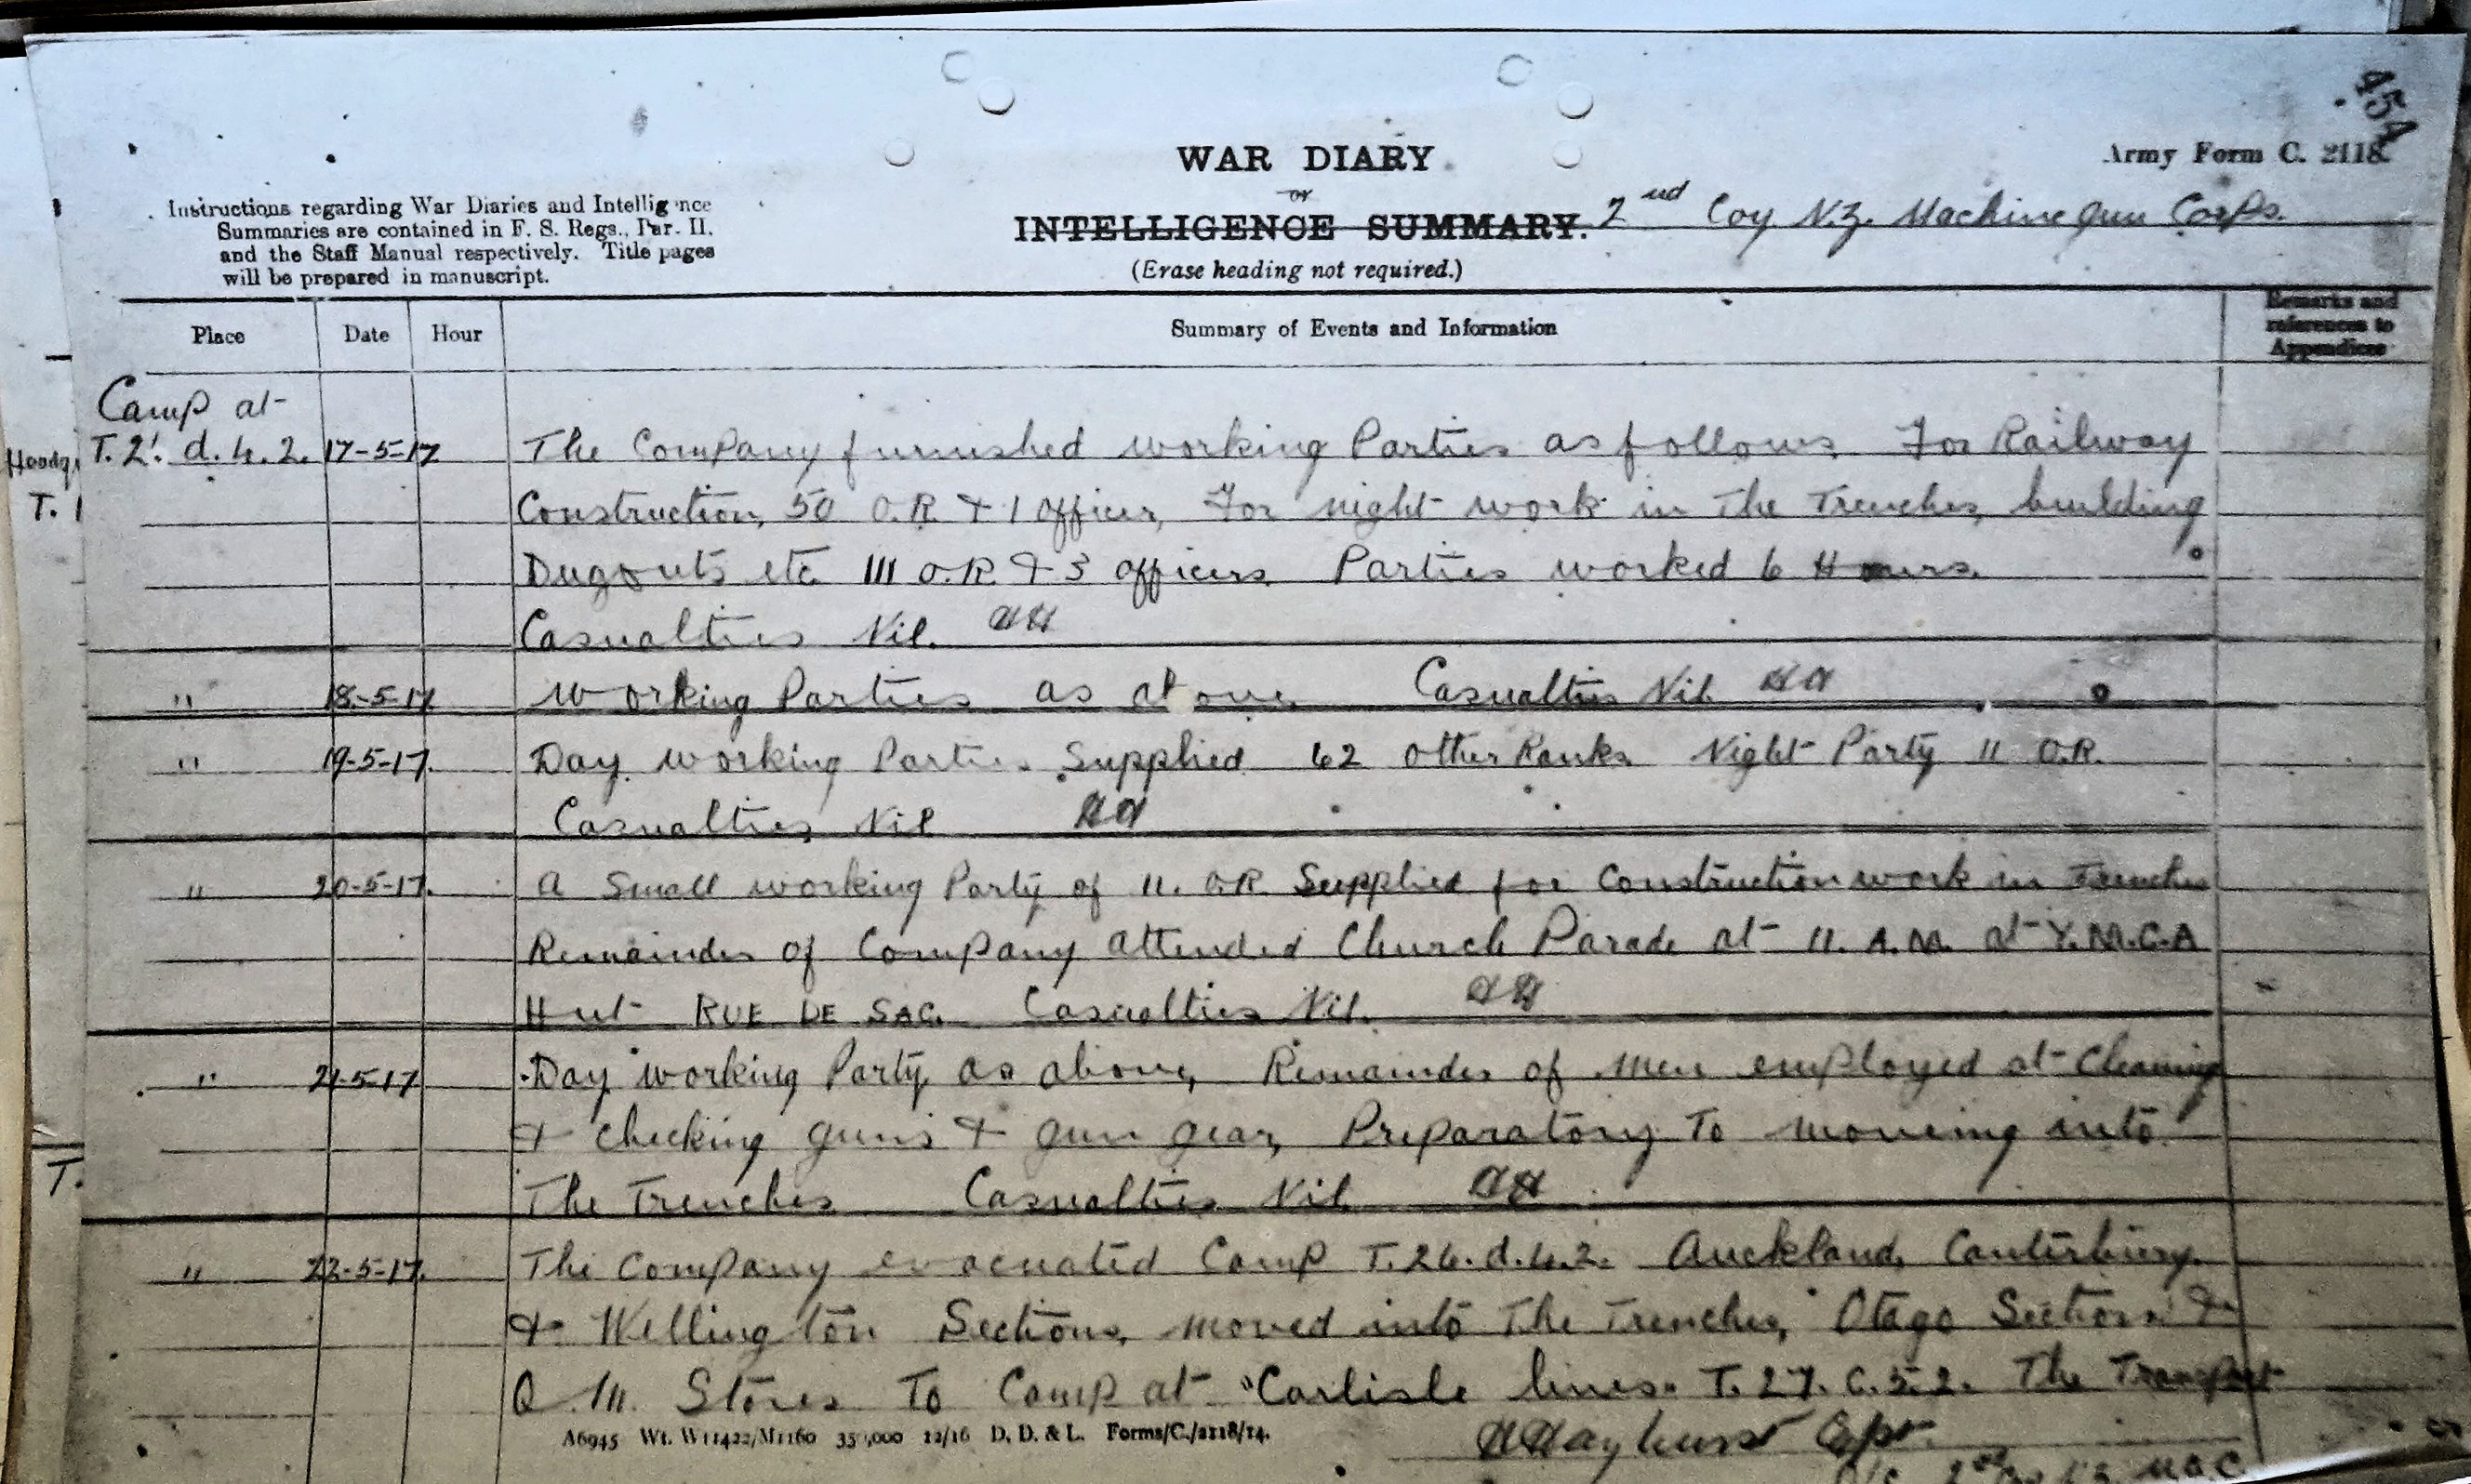 454
WAR DIARY
Army Form C. 2118.
or
Instructions regarding War Diaries and Intelligence
Summaries are contained in F. S. Regs., Par. II.
and the Staff Manual respectively. Title pages
will be prepared in manuscript.
INTELLIGENCE SUMMARY. 2nd Coy N.Z. Machine Gun Corps.
(Erase heading not required.)
Place Date Hour Summary of Events and Information Remarks and references to Appendices
Camp at
T.2'. d.4.2. 17-5-17 The Company furnished working Parties as follows. For Railway
Construction, 50 O.R. & 1 Officer, For night work in The Trenches, building
Dugouts etc 111 O.R. & 3 officers. Parties worked 6 Hours.
Casualties Nil. HH
" 18-5-17 Working Parties as above Casualties Nil. HH
" 19-5-17. Day working Parties Supplied 62 Other Ranks Night Party 11 O.R.
Casualties Nil HH
" 20-5-17. A Small working Party of 11. O.R. Supplied for Construction work in Trenches
Remainder of Company attended Church Parade at 11. A.M. at Y.M.C.A
Hut RUE DE SAC. Casualties Nil. HH
" 21-5-17 Day working Party as above, Remainder of men employed at Cleaning
& checking guns & gun gear, Preparatory To moving into
The Trenches Casualties Nil HH
" 22-5-17. The Company evacuated Camp T.26.d.4.2. Auckland, Canterbury.
& Wellington Sections, moved into The Trenches, Otago Section &
Q.M. Stores To Camp at "Carlisle lines" T.27.C.5.2. The Transport
A6945 Wt. W11422/M1160 350,000 12/16 D. D. & L. Forms/C./2118/14.
HHayhurst Capt.
O/C 2nd Coy N.Z. M.G.C.
Headq.
T. 1
T.